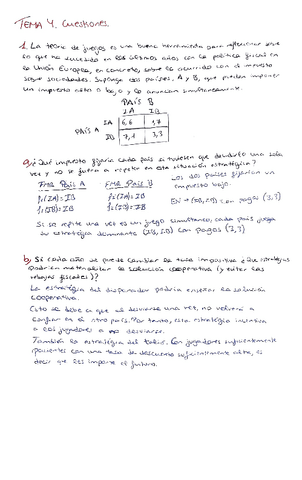 TEMA 4. Cuestiones.
1. La teoría de juegos es una buena herramienta para reflexionar sobre
lo que ha sucedido en los últimos años con la política fiscal en
la Unión Europea, en concreto, sobre lo ocurrido con el impuesto
sobre sociedades. Suponga dos países, A y B, que pueden imponer
un impuesto alto o bajo y lo anuncian simultáneamente.
PAÍS B
IA IB
PAÍS A IA 6,6 1,7
IB 7,1 3,3
a) ¿Qué impuesto fijaría cada país si tuviesen que decidirlo una sola
vez y no se fuera a repetir en esta situación estratégica?
FMR País A FMR País B Los dos países fijarían un
impuesto bajo.
f1(IA)=IB f2(IA)=IB
f1(IB)=IB f2(IB)=IB EN → (IB, IB) con pagos (3,3)
Si se repite una vez es un juego simultáneo, cada país juega
su estrategia dominante (IB, IB) con pagos (3,3)
b) Si cada año se puede cambiar la tasa impositiva ¿Qué estrategias
podrían materializar la solución cooperativa (y evitar las
rebajas fiscales)?
La estrategia del disparador podría ejercer la solución
cooperativa.
Esto se debe a que si desvía una vez, no volverá a
confiar en el otro país. Por tanto, esta estrategia incentiva
a los jugadores a no desviarse.
También la estrategia del Talión. Con jugadores suficientemente
pacientes con una tasa de descuento suficientemente alta, es
decir que les importe el futuro.